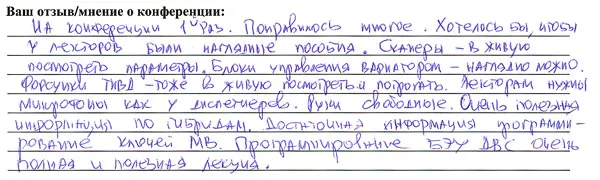 Ваш отзыв/мнение о конференции:
На конференции 1й раз. Понравилось многое. Хотелось бы, чтобы
у лекторов были наглядные пособия. Сканеры - в живую
посмотреть параметры. Блоки управления вариатором - наглядно можно.
Форсунки ТНВД - тоже в живую посмотреть и потрогать. Лекторам нужны
микрофоны как у диспетчеров. Руки свободные. Очень полезная
информация по гибридам. Достаточная информация программи-
рование ключей MB. Программирование БЭУ ДВС очень
полная и полезная лекция.